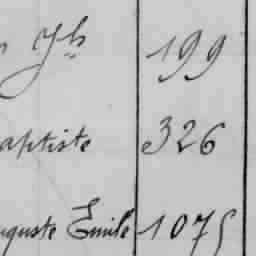 Jh 199
aptiste 326
uguste Emile 1075